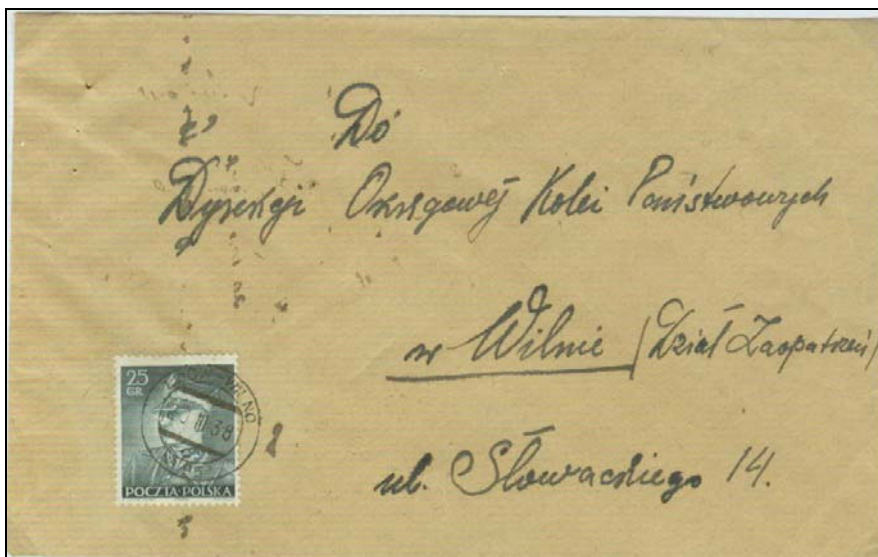 Do
Dyrekcji Okręgowej Kolei Państwowych
w Wilnie /Dział Zaopatrzeń/
ul. Słowackiego 14.
25
GR.
WILNO
III 38
POCZTA·POLSKA